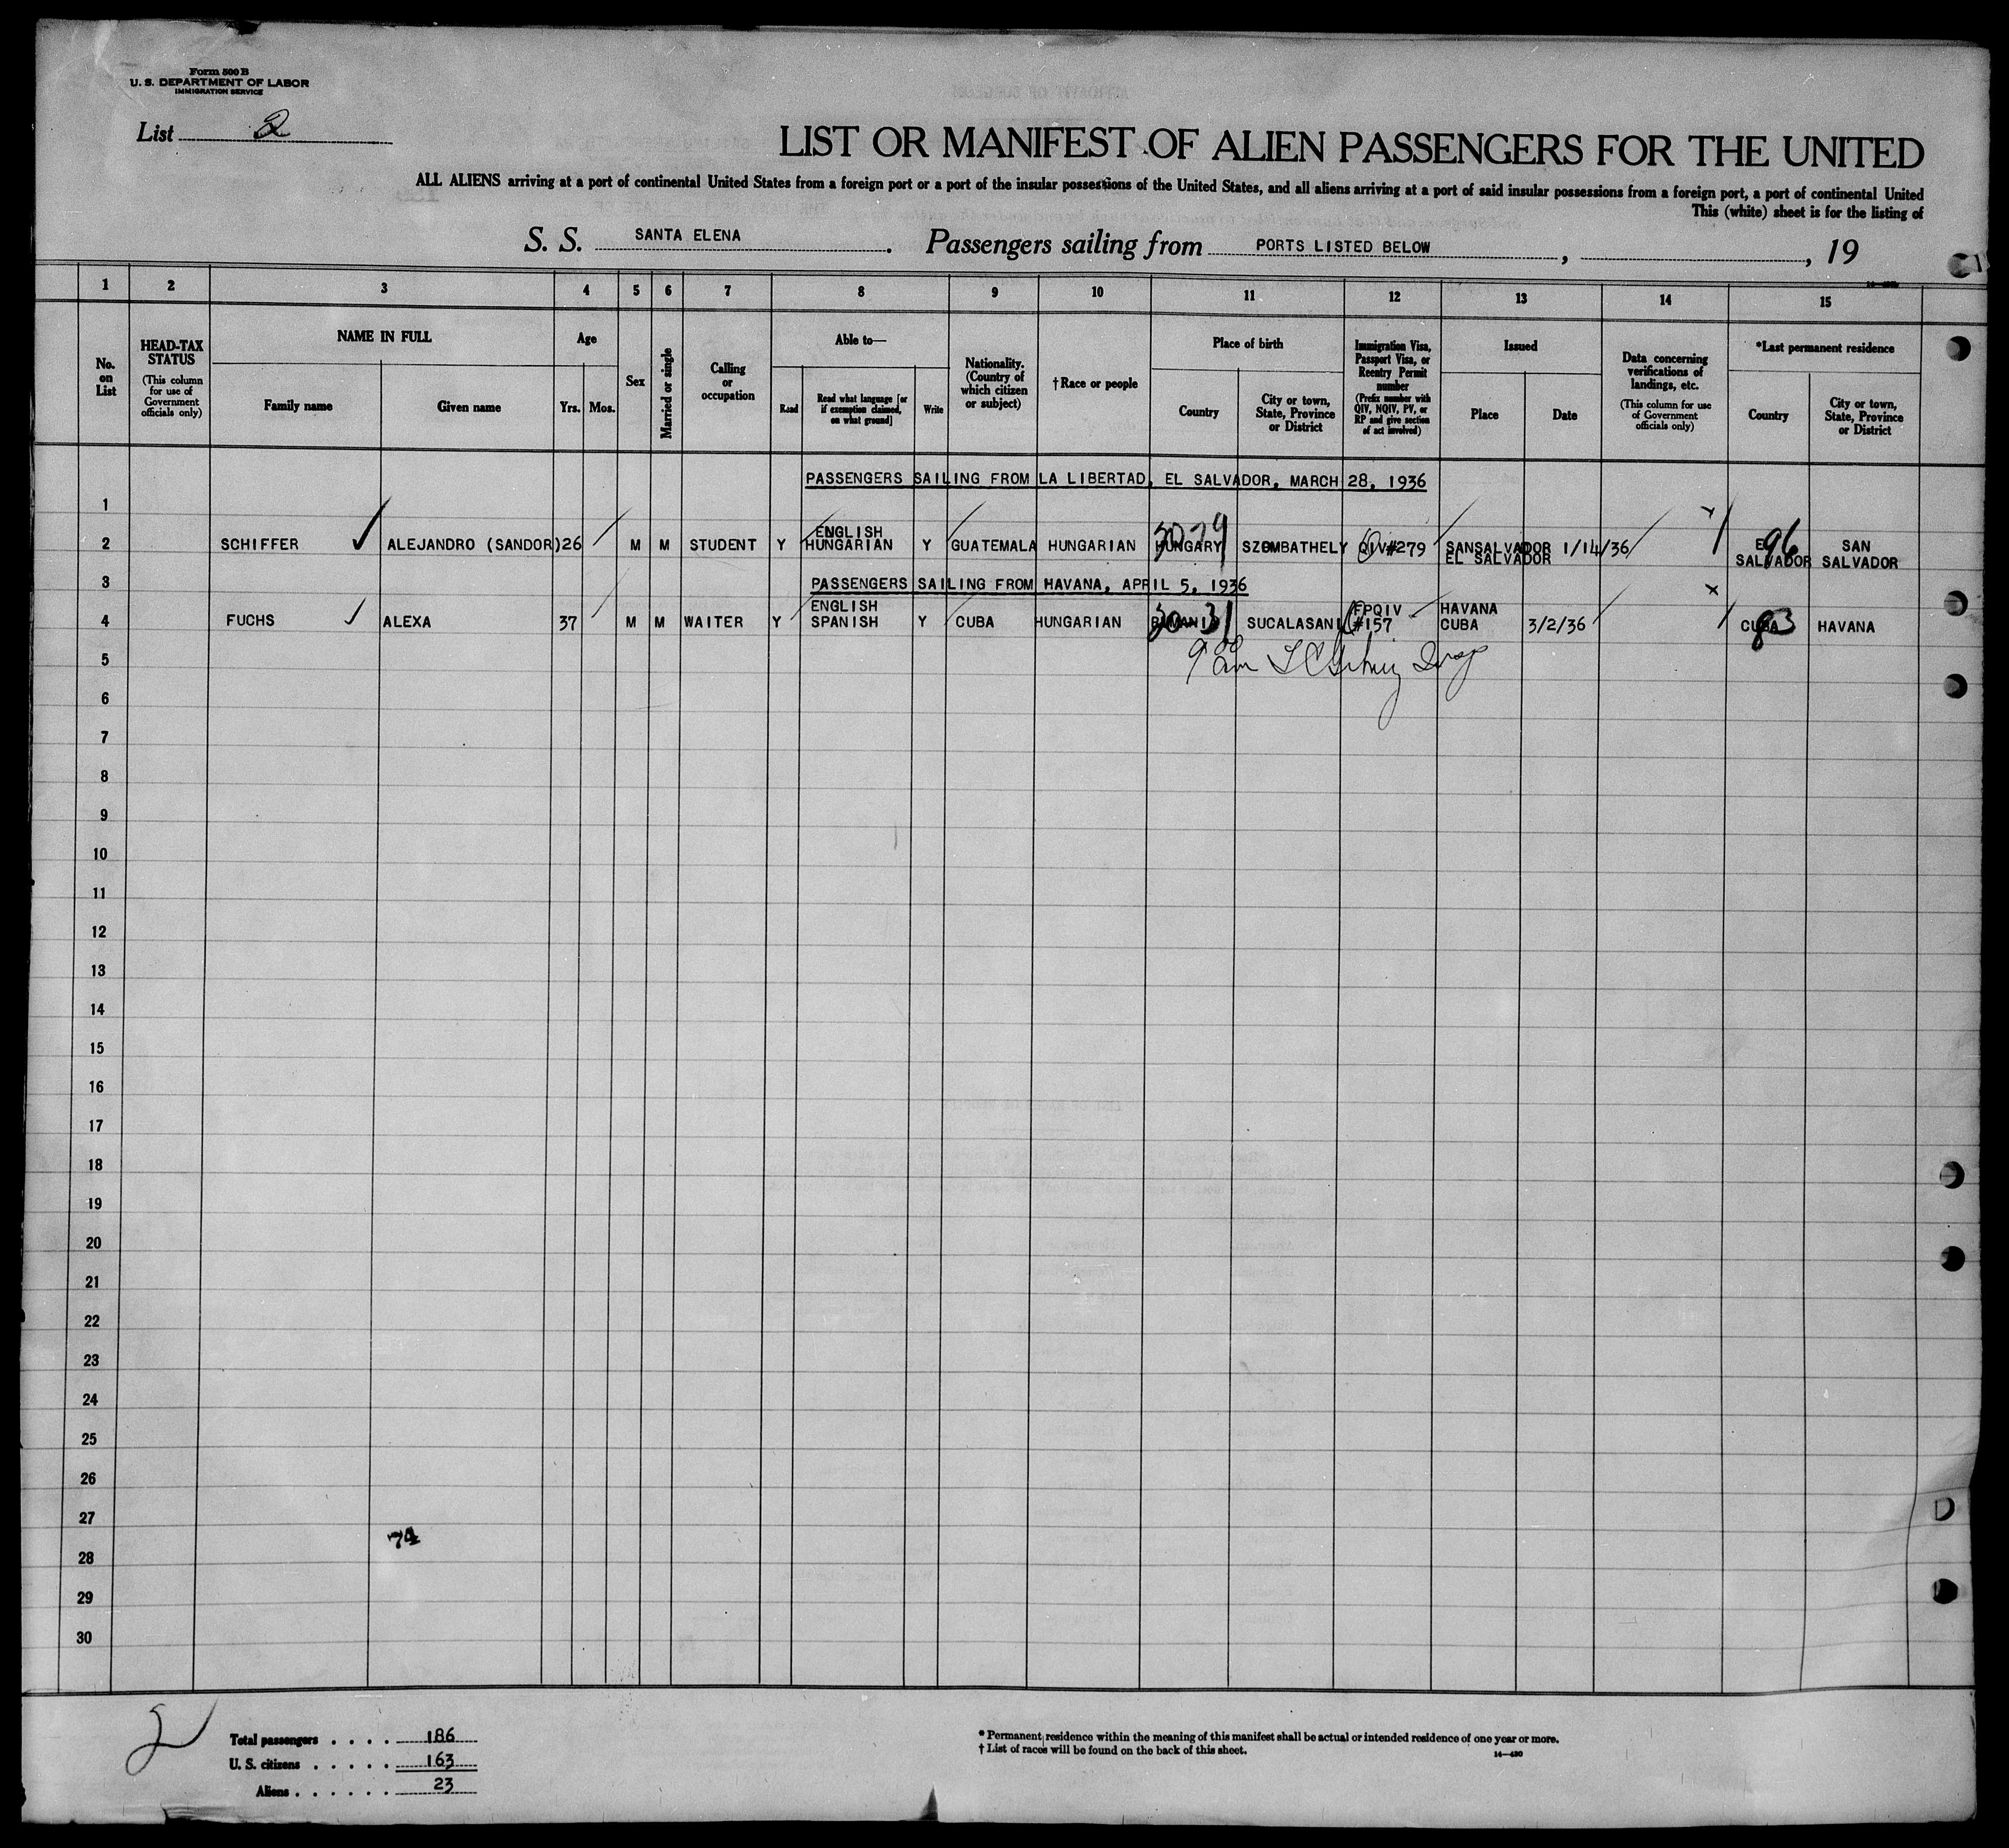 Form 500 B
U. S. DEPARTMENT OF LABOR
IMMIGRATION SERVICE
List 2
LIST OR MANIFEST OF ALIEN PASSENGERS FOR THE UNITED
ALL ALIENS arriving at a port of continental United States from a foreign port or a port of the insular possessions of the United States, and all aliens arriving at a port of said insular possessions from a foreign port, a port of continental United
This (white) sheet is for the listing of
S. S. SANTA ELENA. Passengers sailing from PORTS LISTED BELOW, , 19
1 2 3 4 5 6 7 8 9 10 11 12 13 14 15
No. on List
HEAD-TAX STATUS
(This column for use of Government officials only)
NAME IN FULL
Family name Given name
Age
Yrs. Mos.
Sex
Married or single
Calling or occupation
Able to—
Read
Read what language [or if exemption claimed, on what ground]
Write
Nationality. (Country of which citizen or subject)
†Race or people
Place of birth
Country
City or town, State, Province or District
Immigration Visa, Passport Visa, or Reentry Permit number
(Prefix number with QIV, NQIV, PV, or RP and give section of act involved)
Issued
Place Date
Data concerning verifications of landings, etc.
(This column for use of Government officials only)
*Last permanent residence
Country
City or town, State, Province or District
PASSENGERS SAILING FROM LA LIBERTAD, EL SALVADOR, MARCH 28, 1936
1
2 SCHIFFER ALEJANDRO (SANDOR) 26 M M STUDENT Y ENGLISH HUNGARIAN Y GUATEMALA HUNGARIAN HUNGARY SZOMBATHELY QIV#279 SANSALVADOR EL SALVADOR 1/14/36 96 EL SALVADOR SAN SALVADOR
3 PASSENGERS SAILING FROM HAVANA, APRIL 5, 1936
4 FUCHS ALEXA 37 M M WAITER Y ENGLISH SPANISH Y CUBA HUNGARIAN SUCALASANI FPQIV #157 HAVANA CUBA 3/2/36 83 CUBA HAVANA
5
6
7
8
9
10
11
12
13
14
15
16
17
18
19
20
21
22
23
24
25
26
27
74
28
29
30
2
Total passengers . . . . 186
U. S. citizens . . . . . 163
Aliens . . . . . . 23
* Permanent residence within the meaning of this manifest shall be actual or intended residence of one year or more.
† List of races will be found on the back of this sheet.
14—430